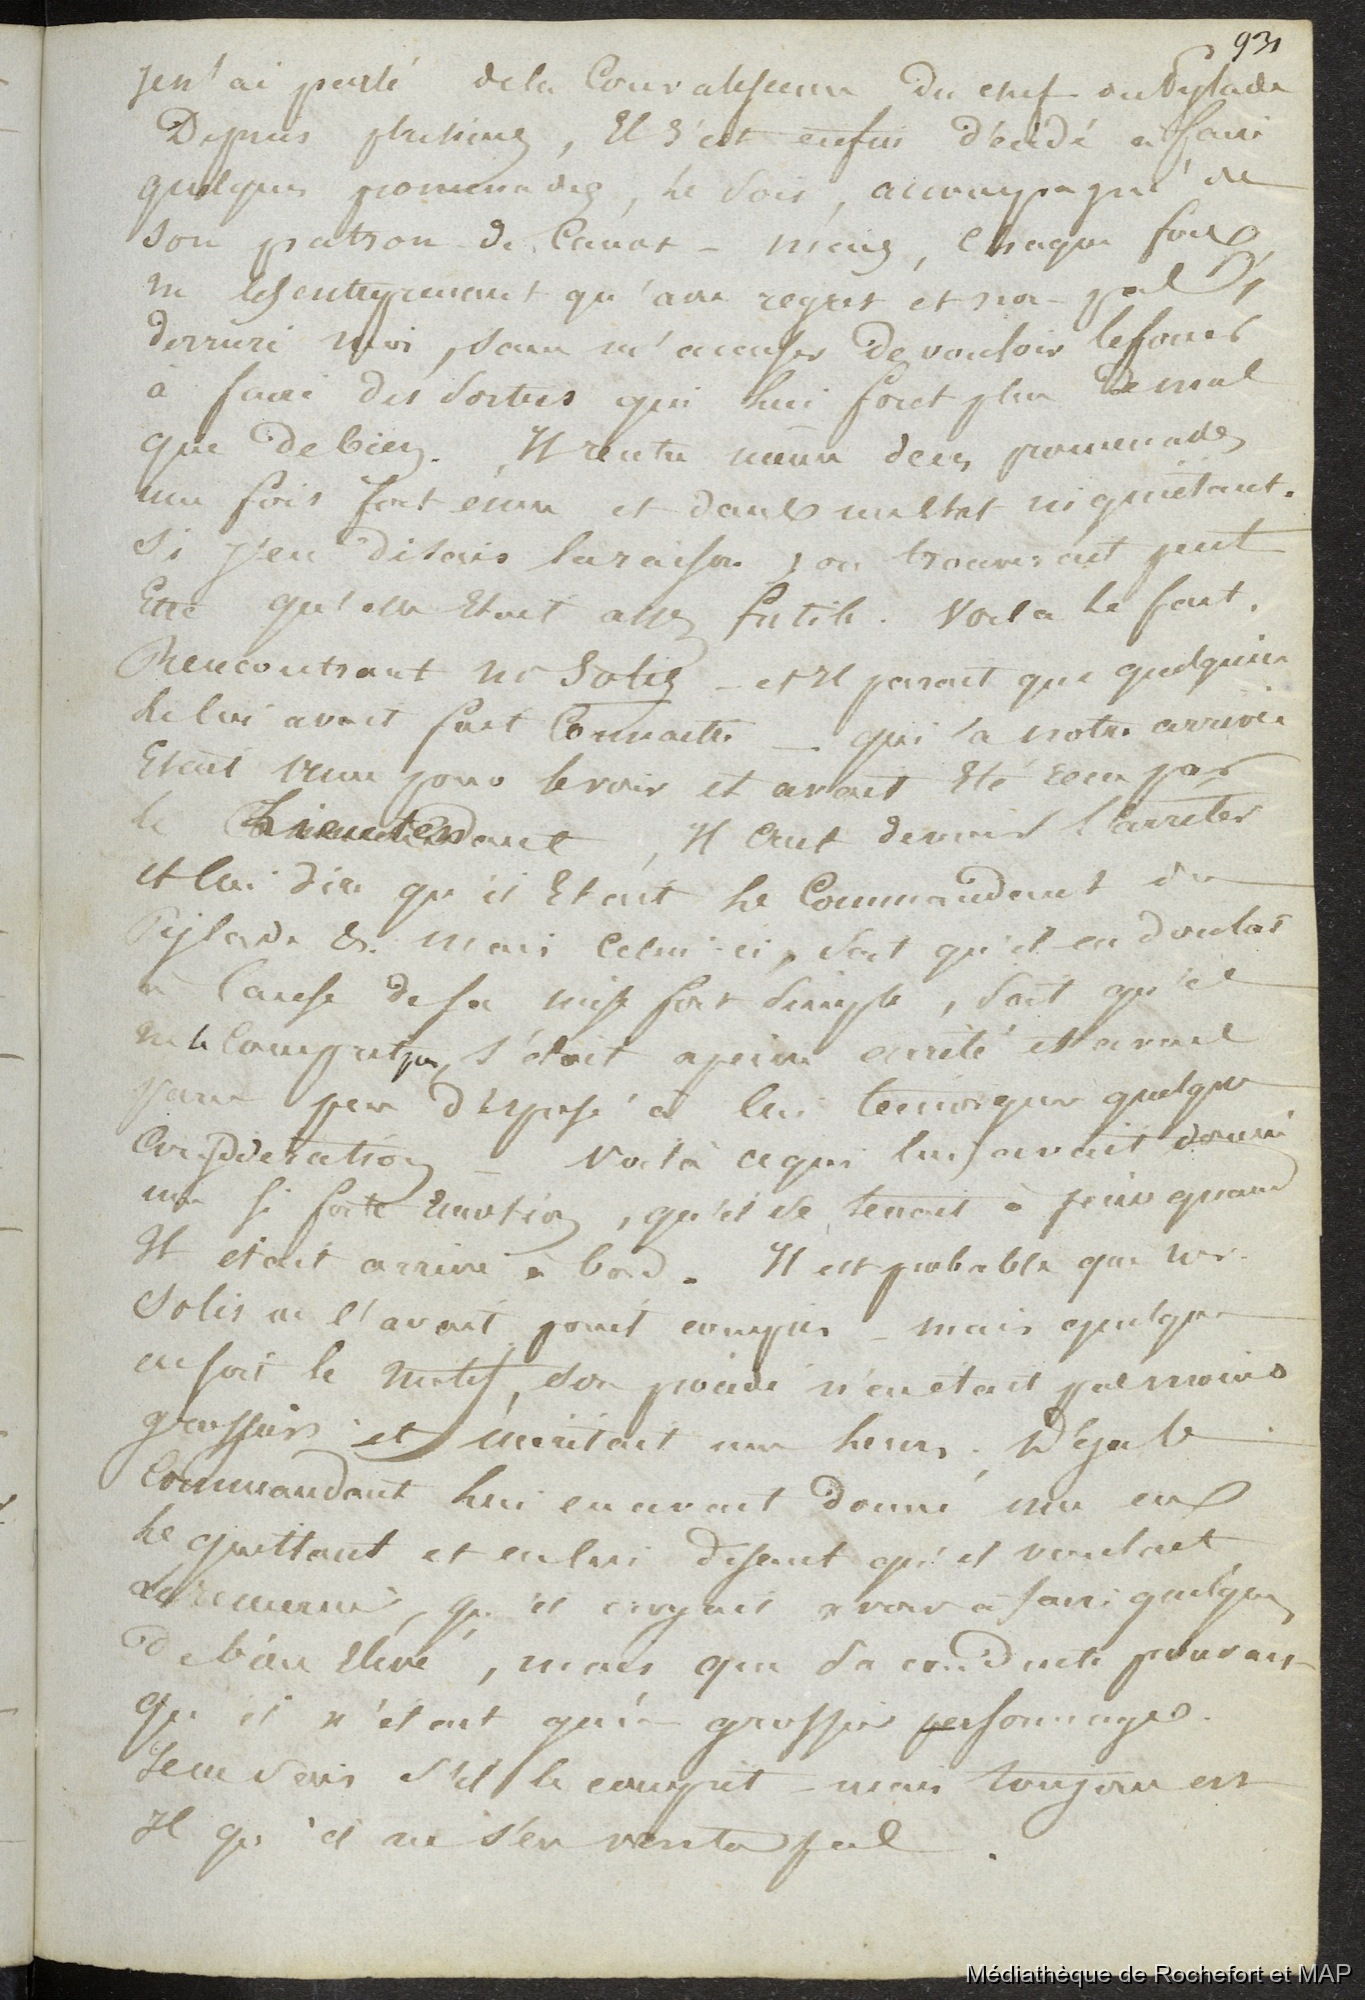 931
Je n'ai parlé de la Convalessence du chef du Pylade
Depuis , Il s'est enfin décidé a faire
quelques promenades, le soir, accompagné de
son patron de Canot - mais, chaque fois,
ne les entreprenant qu'avec regret et non pas
derriere moi, sans m'accuser de vouloir le forcer
à faire des sorties qui lui font plus de mal
que de bien. Il rentra même de ces promenades
une fois fort emu et dans un Etat inquiétant.
Si j'en disais la raison, on trouverait peut
Etre qu'elle Etait assez futile. Voila le fait.
Rencontrant Mr Solis - et Il parait que quelqu'un
le lui avait fait Connaitre - qui à notre arrivée
Etait venu pour le voir et avait Eté reçu par
le Lieutenant, Il crut devoir l'arreter
et lui dire qu'il Etait le Commandant du
Pylade &. mais celui-ci, soit qu'il en doutat
à Cause de sa mise fort simple, soit qu'il
ne le comprit pas, s'était a peine arrêté et avait
paru peu disposé à lui temoigner quelque
Consideration - Voilà ce qui lui avait donné
une si forte Emotion, qu'il se tenait à peine quand
Il etait arrivé à bord. Il est probable que Mr.
Solis ne l'avait point compris - mais quelque
en soit le motif, son procédé n'en était pas moins
grossier et méritait une leçon. Déja le
Commandant lui en avait donné une en
le quittant et en lui disant qu'il voulait
, qu'il croyait avoir a faire quelqu'un
de bien Elevé, mais que sa conduite prouvait
qu'il n'était qu'un grossier personnage.
Je ne sais s'il le comprit - mais toujours est
Il qu'il ne s'en venta pas.
Médiathèque de Rochefort et MAP